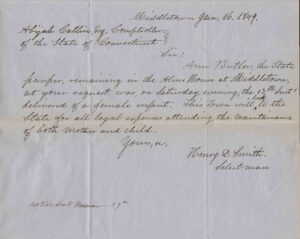 Middletown Jan. 16. 1849.
Abijah Catlin Esq. Comptroller
of the State of Connecticut
Sir:
Ann Butler, the State
pauper, remaining in the Alms House at Middletown,
at your request was on Saturday evening, the 13th Inst.
delivered of a female infant. This Town will look to the
State for all legal expenses attending the maintenance
of both Mother and child.
Yours,
Henry D. Smith
Selectman
17th